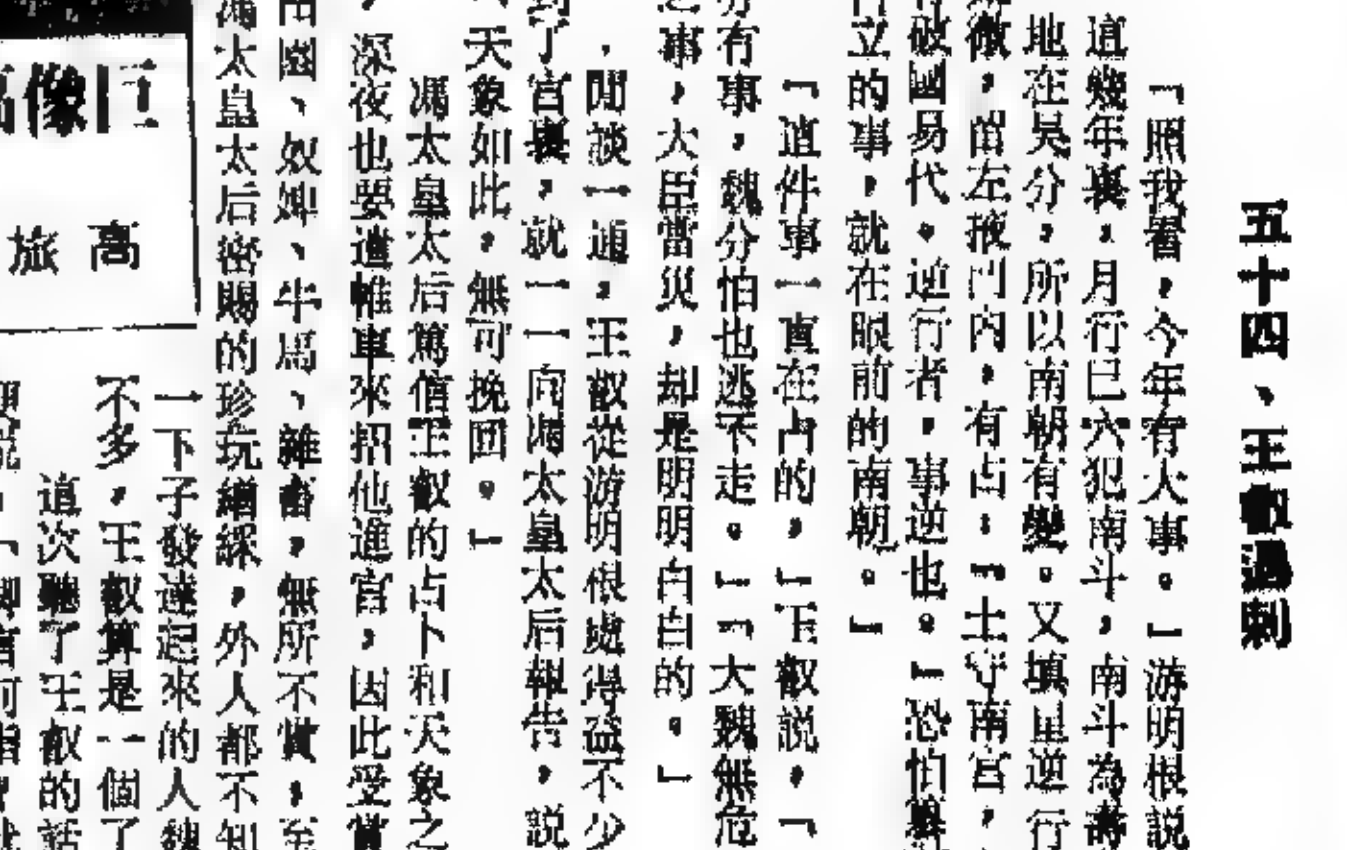 五十四、王叡遇刺
「照我看，今年有大事。」游明根説
這幾年裏，月行已六犯南斗，南斗為壽
地在吴分，所以南朝有變。又填星逆行
微，留左掖門內，有占：『土守南宮，
破國易代。逆行者，事逆也。』恐怕
立的事，就在眼前的南朝。」
「這件事一直在占的，」王叡説，「
分有事，魏分怕也逃不走。」「大魏無危
之事，大臣當災，却是明明白白的。」
，閒談一通，王叡從游明根處得益不少
到了宮裏，就一一向馮太皇太后報告，説
天象如此，無可挽回。」
馮太皇太后篤信王叡的占卜和天象之
，深夜也要遣帷車來招他進宮，因此受賞
田園、奴婢、牛馬、雜畜，無所不賞，至
馮太皇太后密賜的珍玩繒綵，外人都不知
一下子發達起來的人魏
不多，王叡算是一個了
這次聽了王叡的話
巨像
高旅